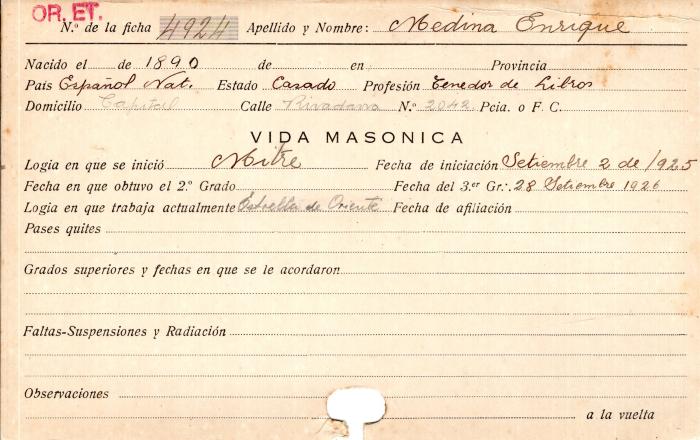 OR. ET.
N.º de la ficha 4924 Apellido y Nombre: Medina Enrique
Nacido el de 1890 de en Provincia
País Español Nat. Estado Casado Profesión Tenedor de Libros
Domicilio Capital Calle Rivadavia N.º 2042 Pcia. o F. C.
VIDA MASONICA
Logia en que se inició Mitre Fecha de iniciación Setiembre 2 de 1925
Fecha en que obtuvo el 2.º Grado Fecha del 3.er Gr.: 28 Setiembre 1926
Logia en que trabaja actualmente Estrella de Oriente Fecha de afiliación
Pases quites
Grados superiores y fechas en que se le acordaron
Faltas-Suspensiones y Radiación
Observaciones
a la vuelta